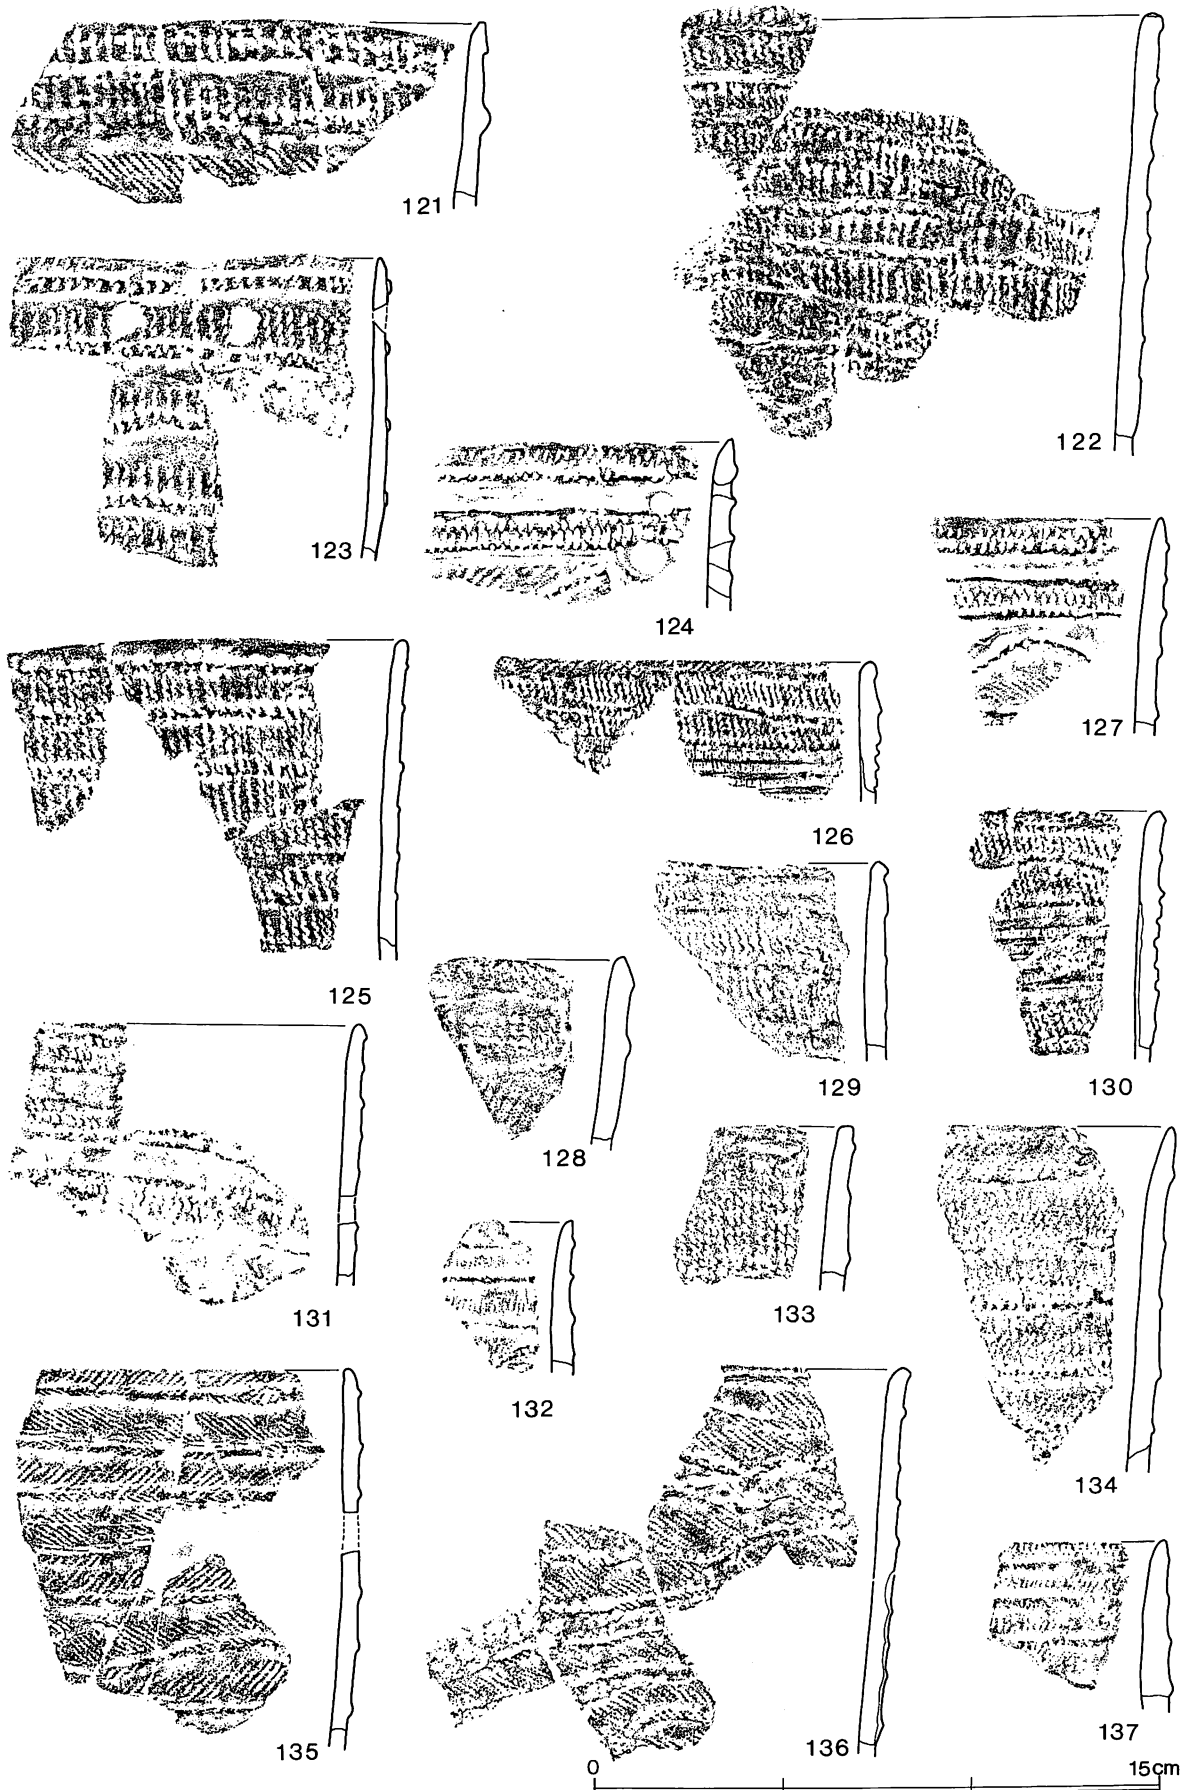 121
122
123
124
127
126
125
129
130
128
131
133
132
134
135
136
137
0 15cm